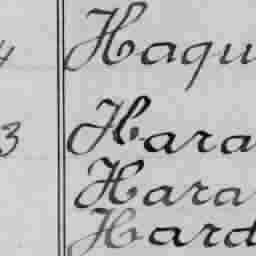 4 Haqu
3 Hara
Hara
Hard